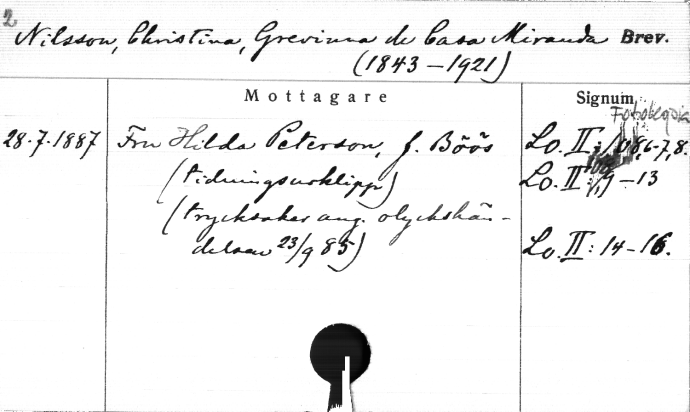 2
Nilsson, Christina, Grevinna de Casa Miranda Brev.
(1843–1921)
Mottagare Signum
28.7.1887 Fru Hilda Peterson, f. Böös Lo. II:
(tidningsurklipp) Lo. II: 9–13
(trycksaker ang. olyckshän-
delsen 23/9 85) Lo. II: 14–16.